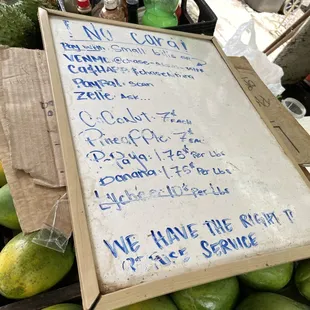 ! No Card!
Pay with: Small bills
VENMO:
CA$HAPP
PayPal: scan
Zelle: Ask...
C-Coulut: 7$ EACH
Pineapple: 7$ EACH
P-Paya: 1.75$ Per Lbs
Banana: 1.75$ Per Lbs
Lychee: 10$ Per Lbs
WE HAVE THE RIGHT T
SERVICE